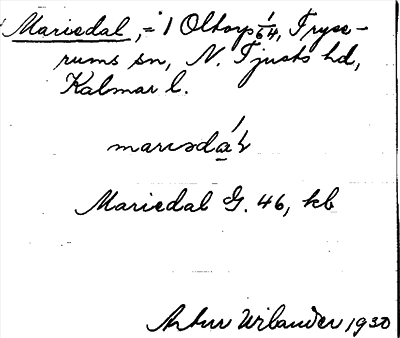 Mariedal, = 1 Oltorp 1/64, Tryse-
rums sn, N. Tjusts hd,
Kalmar l.
Mariedal G. 46, kb
Artur Wilander 1930